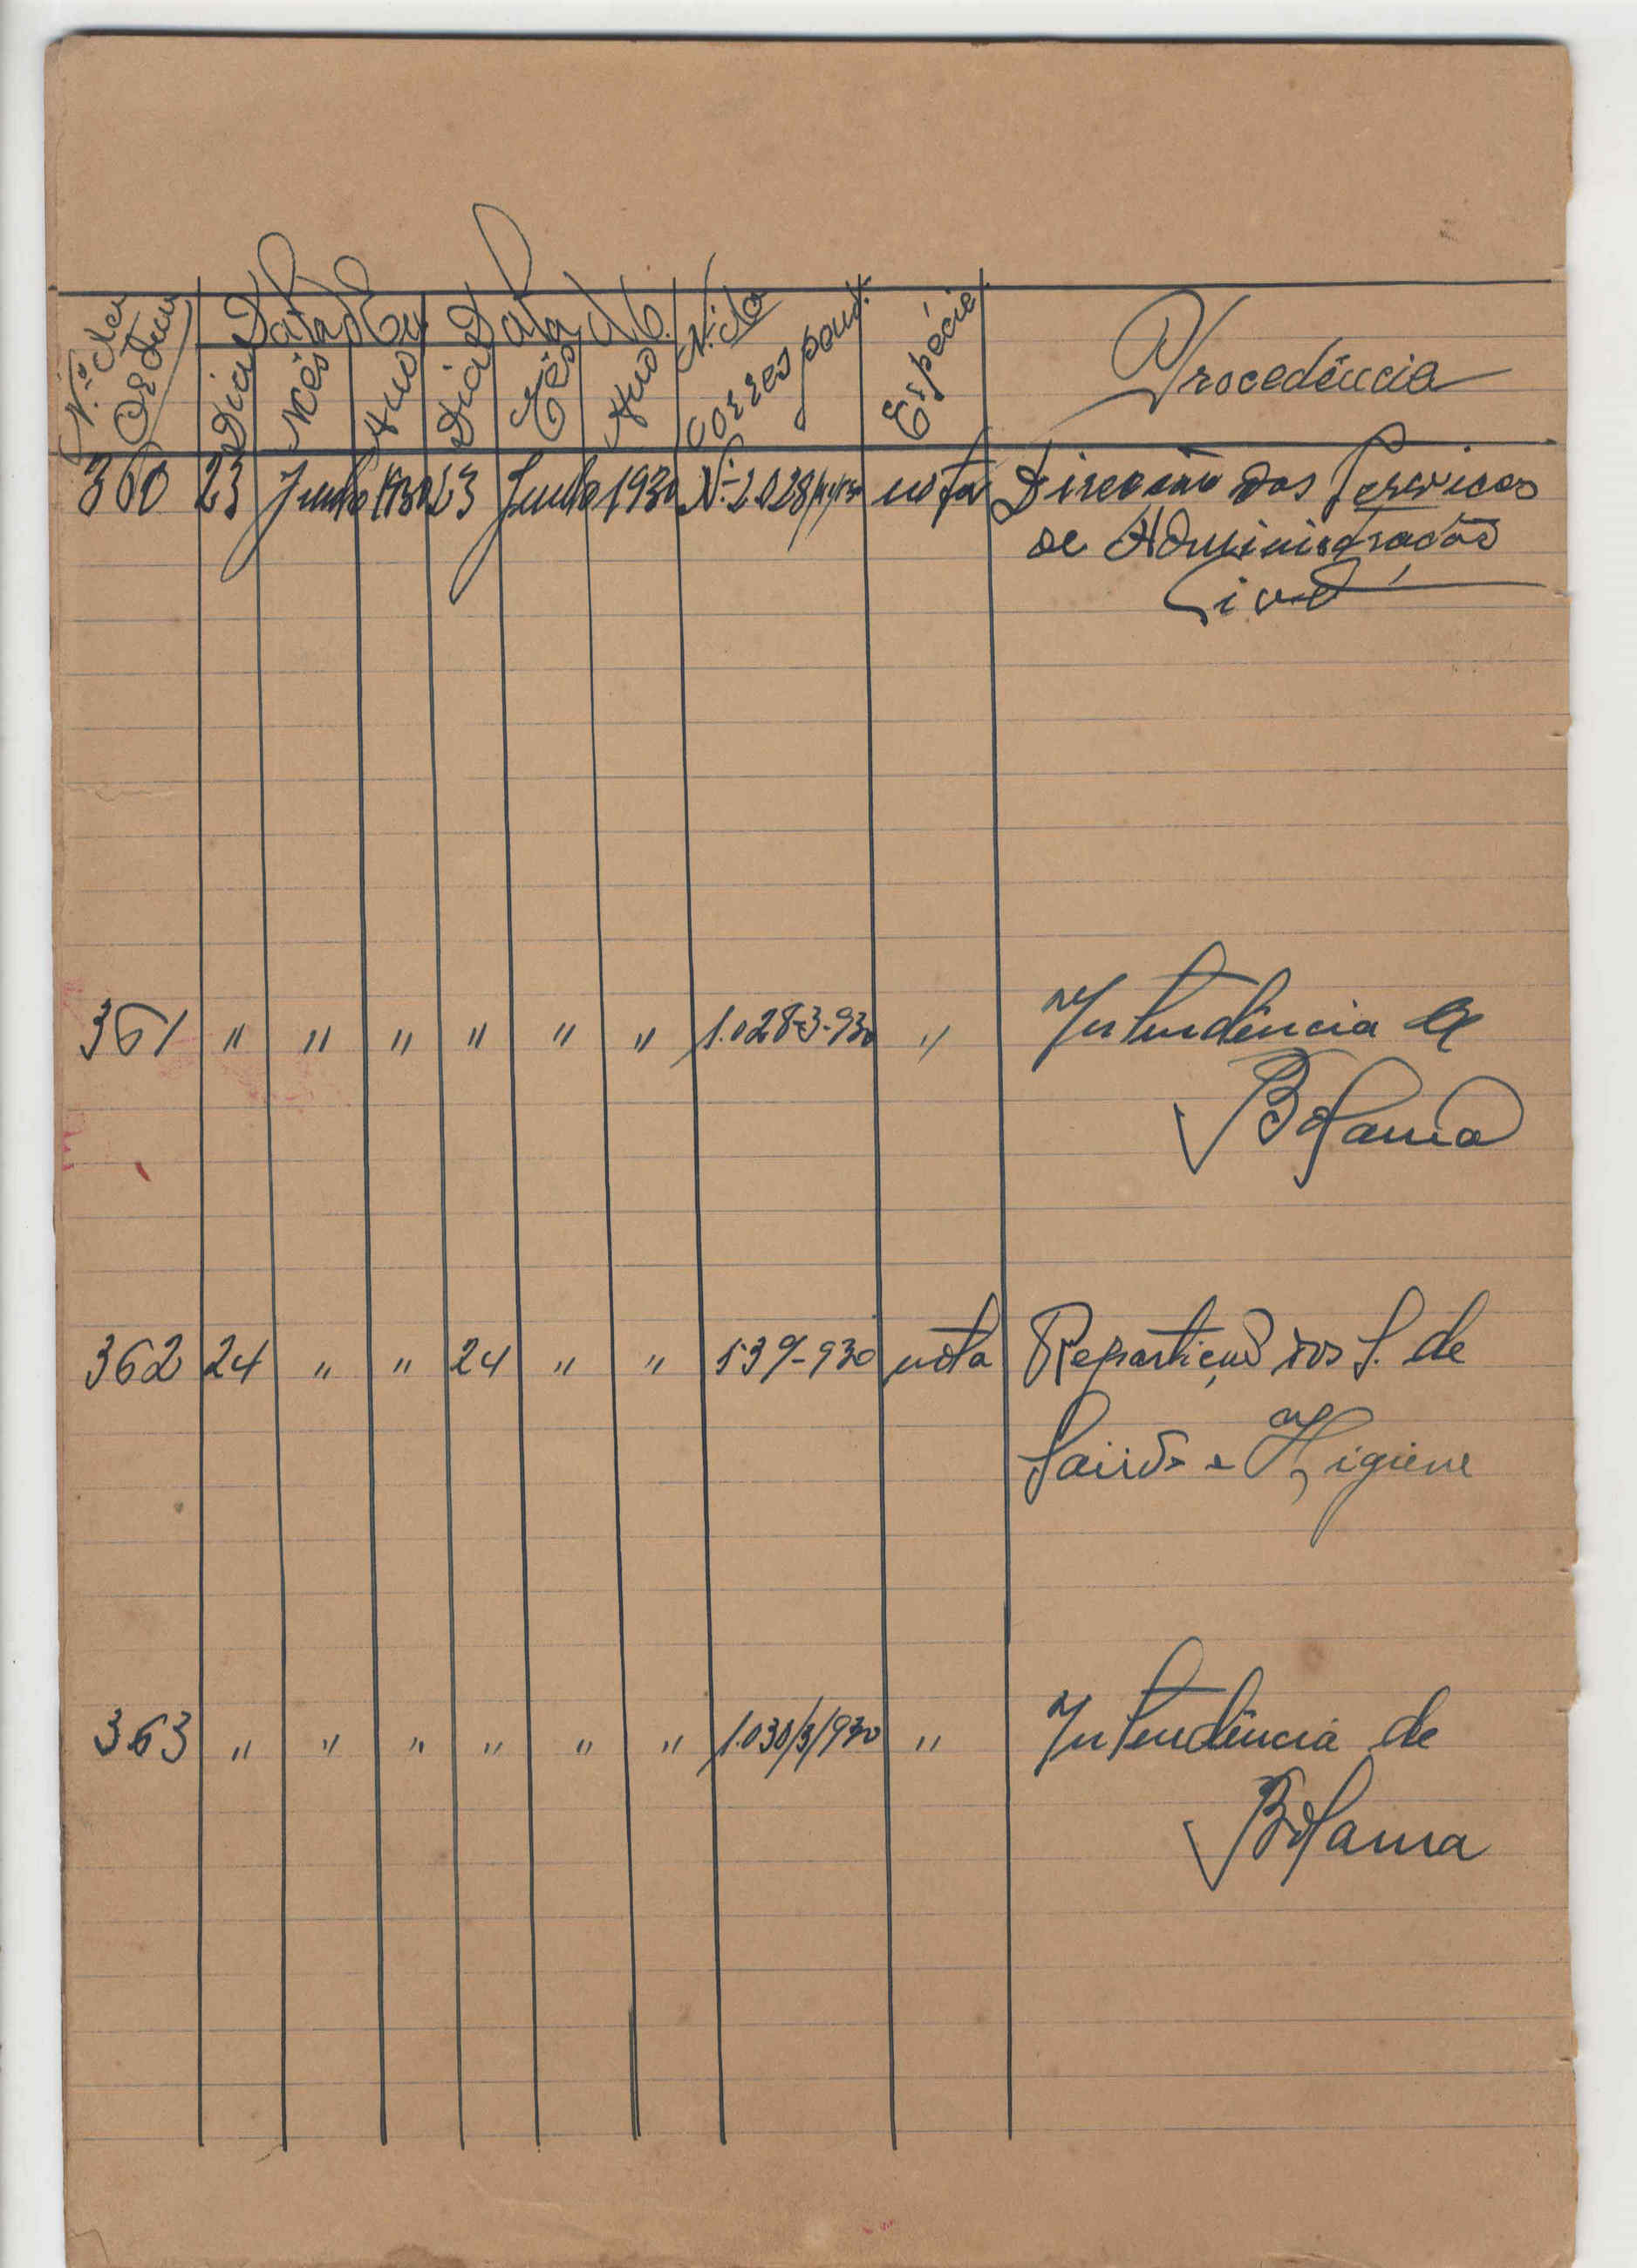 N.º de Ordem
Data da En. Data d C. N.º do correspond. Espécie Procedência
Dia Mês Ano Dia Mês Ano
360 23 Junho 1930 23 Junho 1930 N.º 2.028 nota Direcção dos Serviços
de Administração
Civil
361 " " " " " " 1.028-3-930 " Intendência de
Bolama
362 24 " " 24 " " 539-930 nota Repartição dos S. de
Saúde e Higiene
363 " " " " " " 1.030/3/930 " Intendência de
Bolama